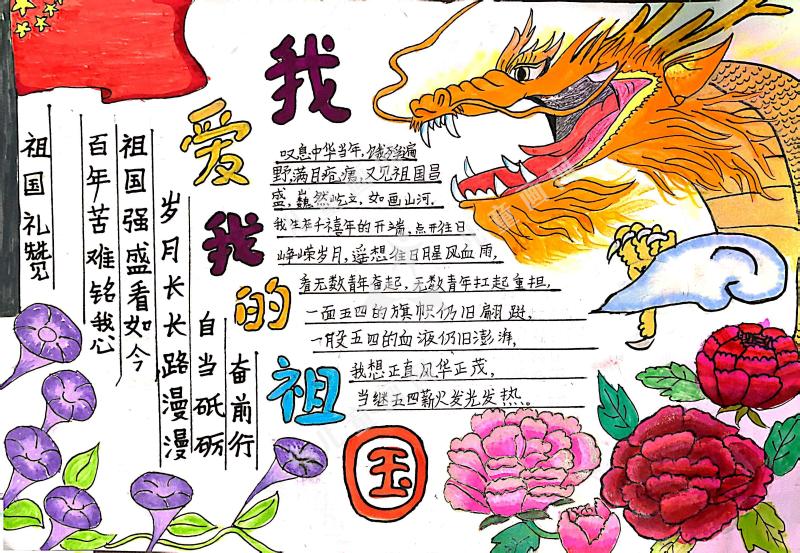 我爱我的祖国
祖国礼赞
百年苦难铭我心
祖国强盛看如今
岁月长长路漫漫
自当砥砺
奋前行
叹息中华当年,饿殍遍
野,满目疮痍,又见祖国昌
盛,巍然屹立,如画山河。
我生在千禧年的开端,点开往日
峥嵘岁月,遥想往日星风血雨,
看无数青年奋起,无数青年扛起重担,
一面五四的旗帜仍旧翩跹,
一股五四的血液仍旧澎湃,
我想正直风华正茂,
当继五四薪火发光发热。